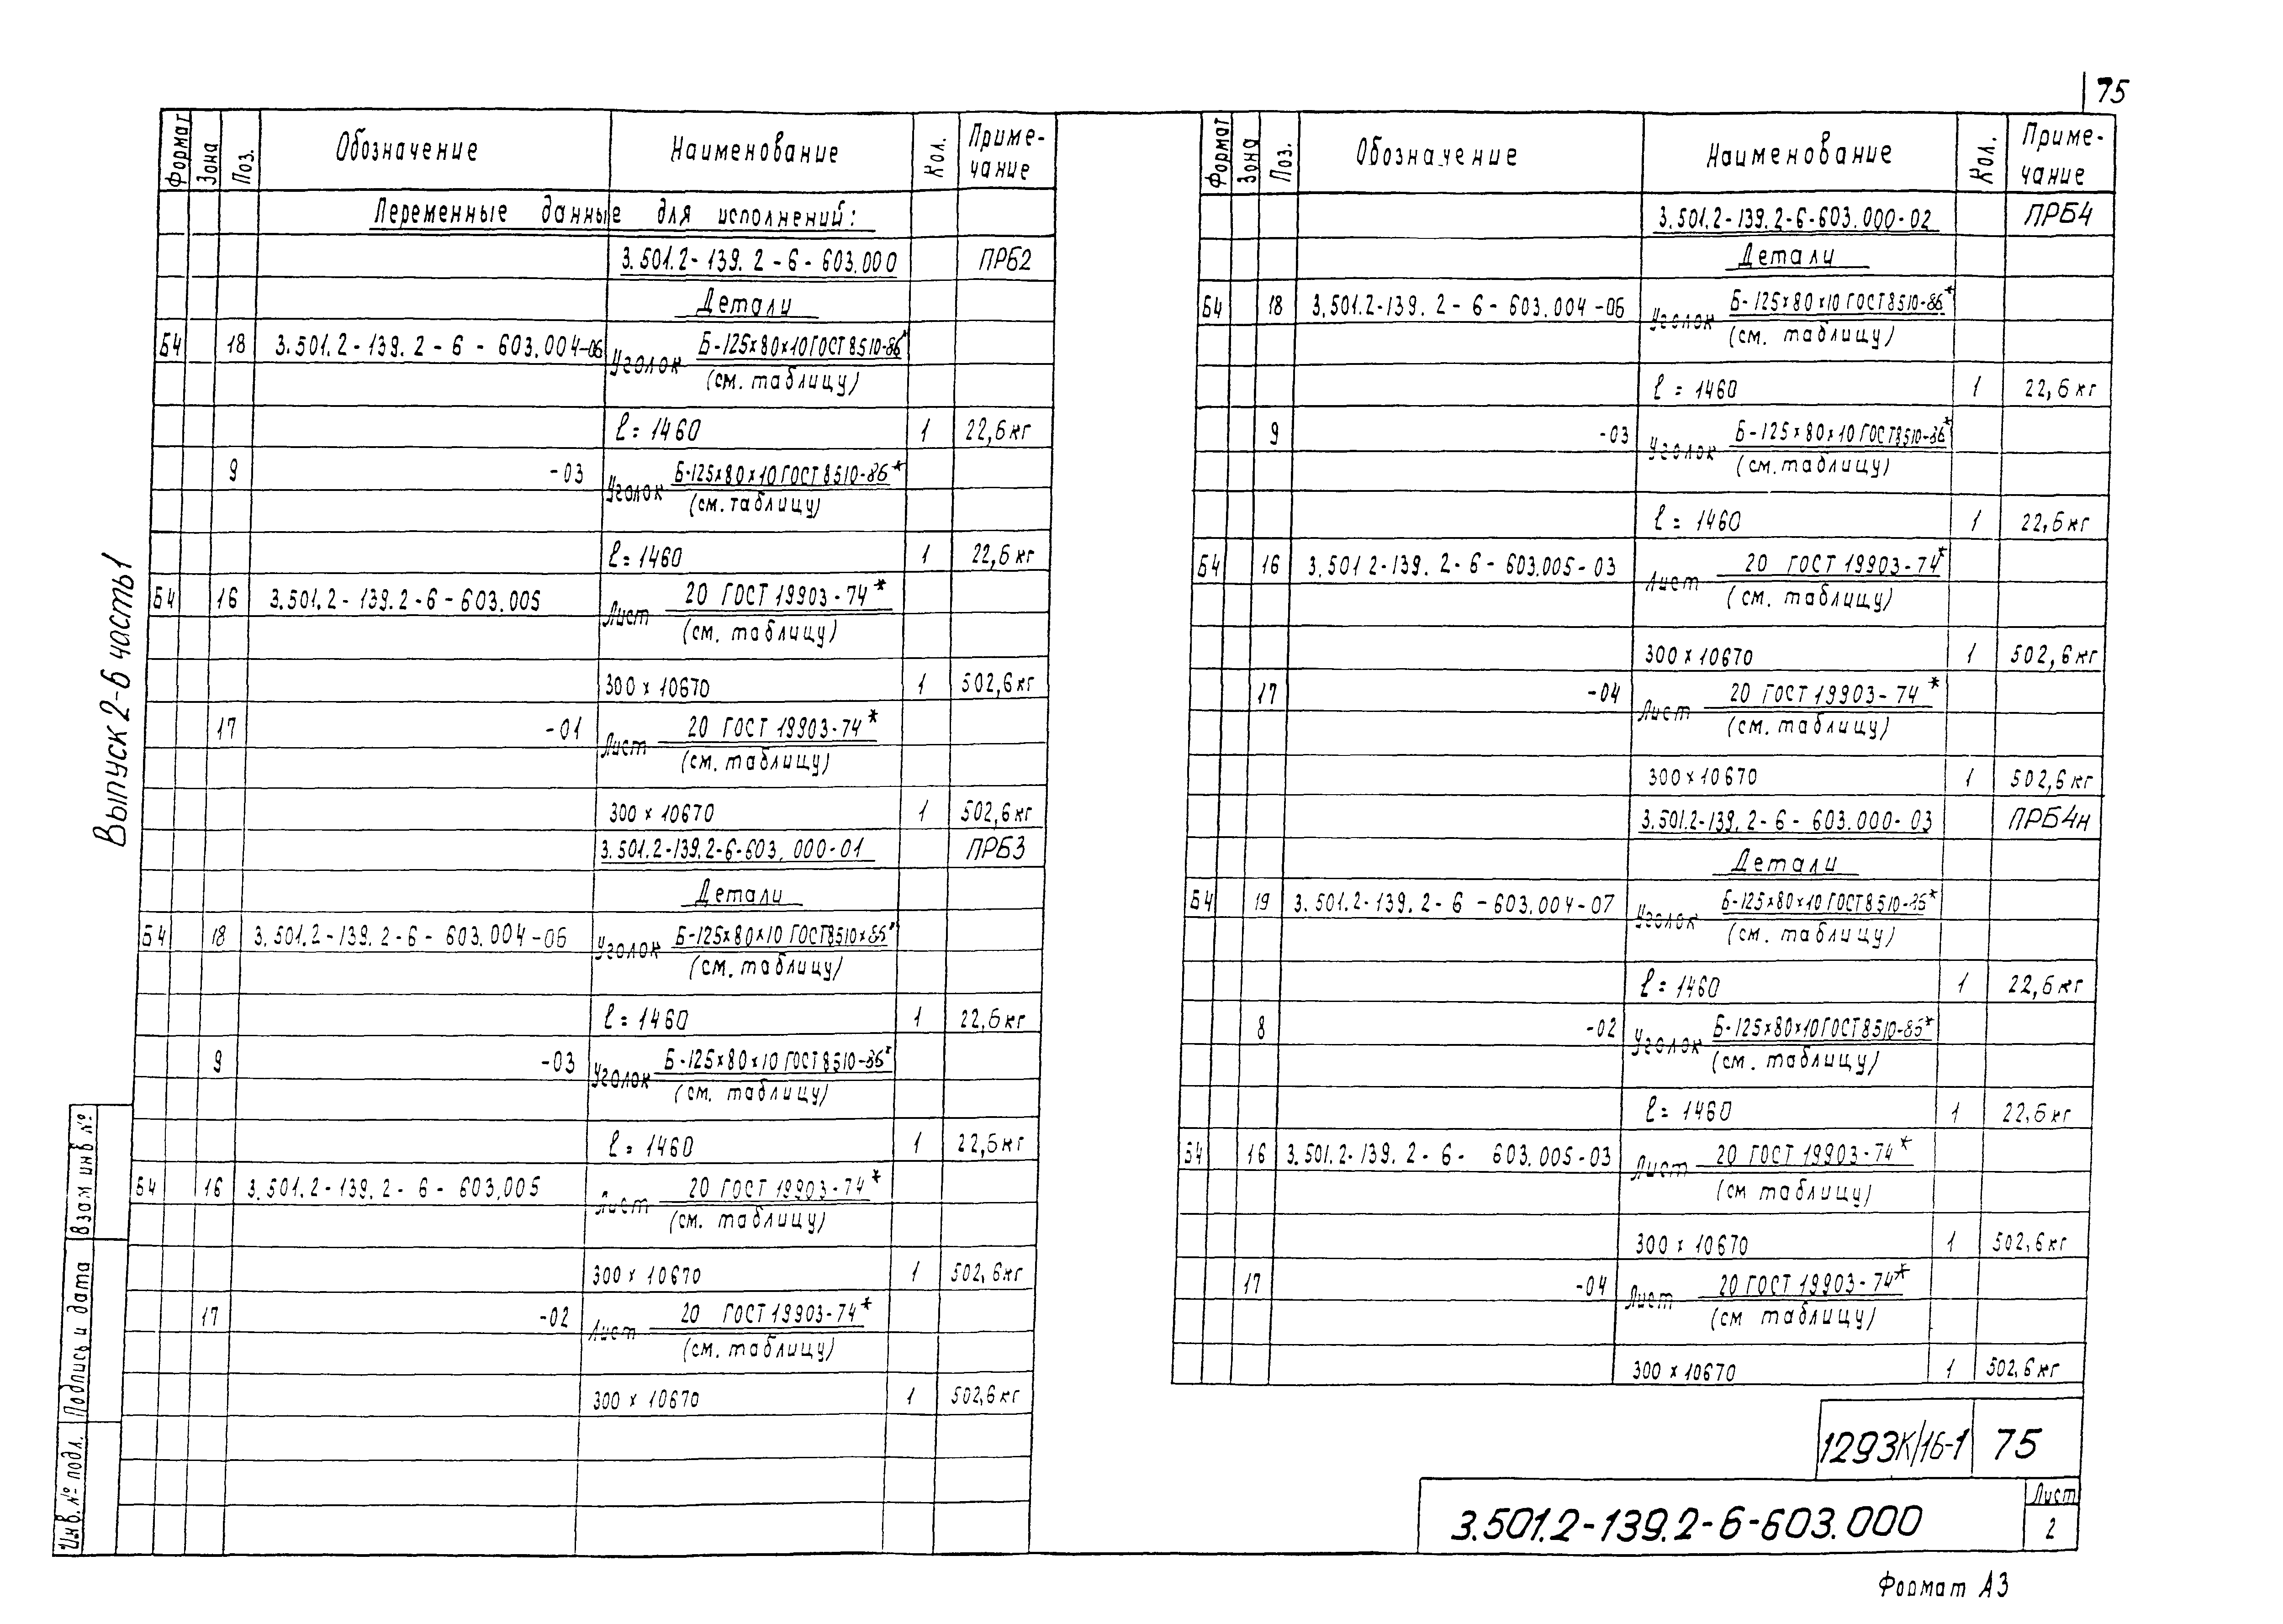 75
Формат Зона Поз. Обозначение Наименование Кол. Приме-чание
Переменные данные для исполнений:
3.501.2-139.2-6-603.000 ПРБ2
Детали
Б4 18 3.501.2-139.2-6-603.004-06 Уголок Б-125х80х10 ГОСТ 8510-86*
(см. таблицу)
ℓ=1460 1 22,6кг
9 -03 Уголок Б-125х80х10 ГОСТ 8510-86*
(см. таблицу)
ℓ=1460 1 22,6кг
Б4 16 3.501.2-139.2-6-603.005 Лист 20 ГОСТ 19903-74*
(см. таблицу)
300х10670 1 502,6кг
17 -01 Лист 20 ГОСТ 19903-74*
(см. таблицу)
300х10670 1 502,6кг
3.501.2-139.2-6-603.000-01 ПРБ3
Детали
Б4 18 3.501.2-139.2-6-603.004-06 Уголок Б-125х80х10 ГОСТ 8510х86*
(см. таблицу)
ℓ=1460 1 22,6кг
9 -03 Уголок Б-125х80х10 ГОСТ 8510-86*
(см. таблицу)
ℓ=1460 1 22,6кг
Б4 16 3.501.2-139.2-6-603.005 Лист 20 ГОСТ 19903-74*
(см. таблицу)
300х10670 1 502,6кг
17 -02 Лист 20 ГОСТ 19903-74*
(см. таблицу)
300х10670 1 502,6кг
Формат Зона Поз. Обозначение Наименование Кол. Приме-чание
3.501.2-139.2-6-603.000-02 ПРБ4
Детали
Б4 18 3.501.2-139.2-6-603.004-06 Уголок Б-125х80х10 ГОСТ 8510-86*
(см. таблицу)
ℓ=1460 1 22,6кг
9 -03 Уголок Б-125х80х10 ГОСТ 8510-86*
(см. таблицу)
ℓ=1460 1 22,6кг
Б4 16 3.501 2-139.2-6-603.005-03 Лист 20 ГОСТ 19903-74*
(см. таблицу)
300х10670 1 502,6кг
17 -04 Лист 20 ГОСТ 19903-74*
(см. таблицу)
300х10670 1 502,6кг
3.501.2-139.2-6-603.000-03 ПРБ4н
Детали
Б4 19 3.501.2-139.2-6-603.004-07 Уголок Б-125х80х10 ГОСТ 8510-86*
(см. таблицу)
ℓ=1460 1 22,6кг
8 -02 Уголок Б-125х80х10 ГОСТ 8510-86*
(см. таблицу)
ℓ=1460 1 22,6кг
Б4 16 3.501.2-139.2-6-603.005-03 Лист 20 ГОСТ 19903-74*
(см таблицу)
300х10670 1 502,6кг
17 -04 Лист 20 ГОСТ 19903-74*
(см таблицу)
300х10670 1 502,6кг
Выпуск 2-6 часть1
Инв. № подл. Подпись и дата Взам инв №
1293К/16-1 75
3.501.2-139.2-6-603.000
Лист
2
Формат А3